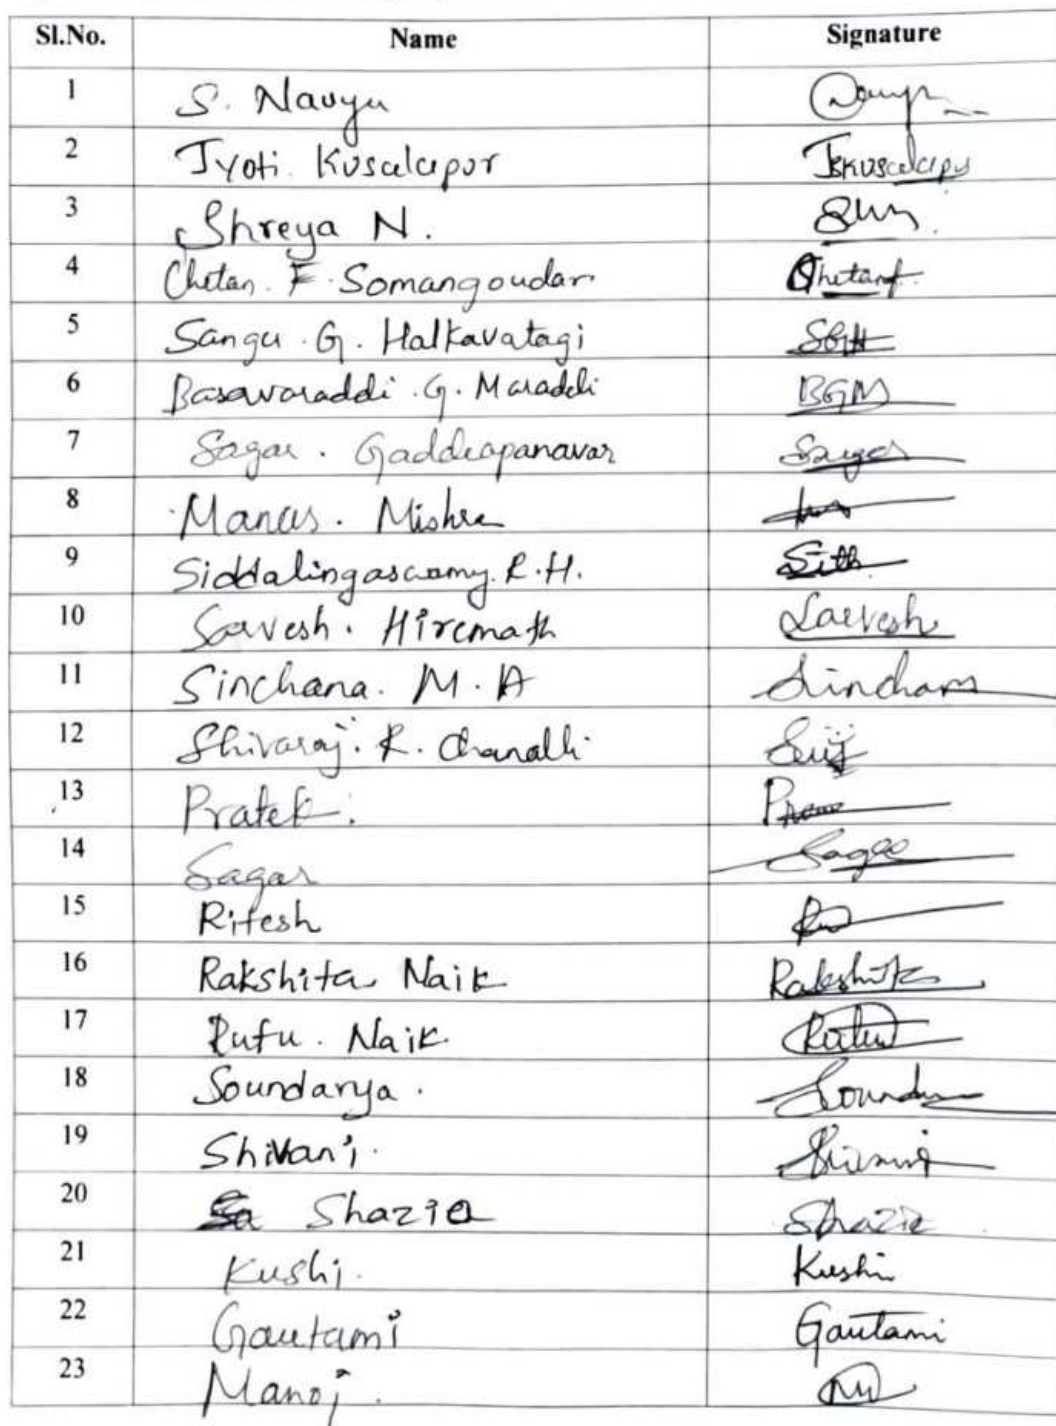 Sl.No. Name Signature
1 S. Navya
2 Jyoti. Kusalapur Jskusalapur
3 Shreya N.
4 Chetan. F. Somangoudar Chetanf
5 Sangu. G. Halkavatagi SGH
6 Basavaraddi. G. Maraddi BGM
7 Sagar. Gaddeapanavar Sagar
8 Manas. Mishra
9 Siddalingaswamy. R.H. Sith
10 Sarvesh. Hiremath Sarvesh
11 Sinchana. M. A Sinchana
12 Shivaraj. R. Chanalli
13 Pratek.
14 Sagar Sagar
15 Ritesh
16 Rakshita Naik Rakshita
17 Rutu. Naik Rutu
18 Soundarya.
19 Shivani. Shivani
20 Shazia Shazia
21 Kushi. Kushi
22 Gautami Gautami
23 Manoj.